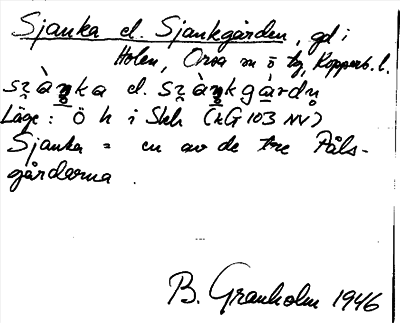 Sjanka el. Sjankgården, gd i
Holen, Orsa sn o tg, Kopparb. l.
sʒ̀aŋka el. sʒ̀aŋkgàrdn̥
Läge: Ö h i Skh (kG 103 NV)
Sjanka = en av de tre Påls-
gårdarna.
B. Granholm 1946